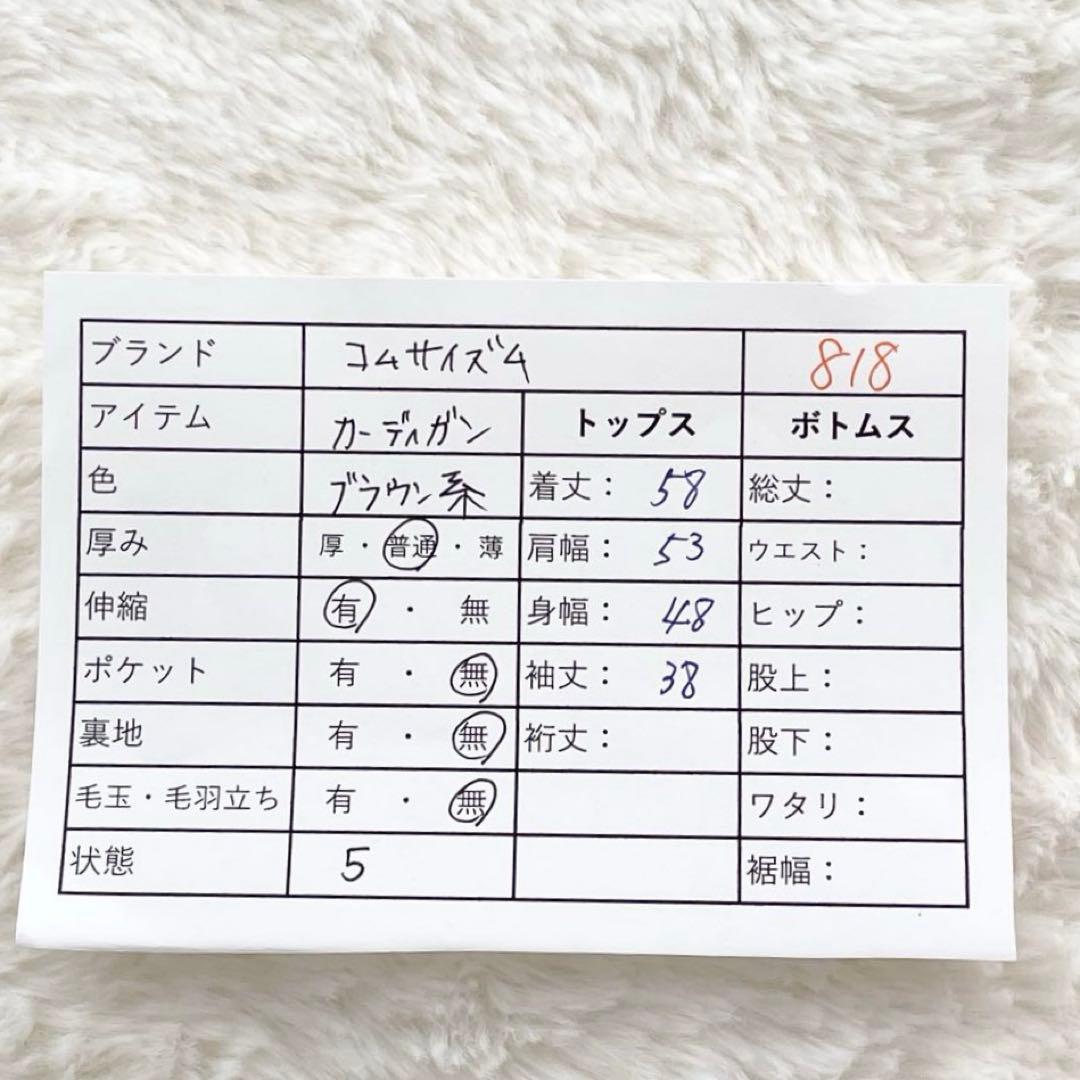 ブランド コムサイズム 818
アイテム カーディガン トップス ボトムス
色 ブラウン系 着丈： 58 総丈：
厚み 厚・普通・薄 肩幅： 53 ウエスト：
伸縮 有・無 身幅： 48 ヒップ：
ポケット 有・無 袖丈： 38 股上：
裏地 有・無 裄丈： 股下：
毛玉・毛羽立ち 有・無 ワタリ：
状態 5 裾幅：